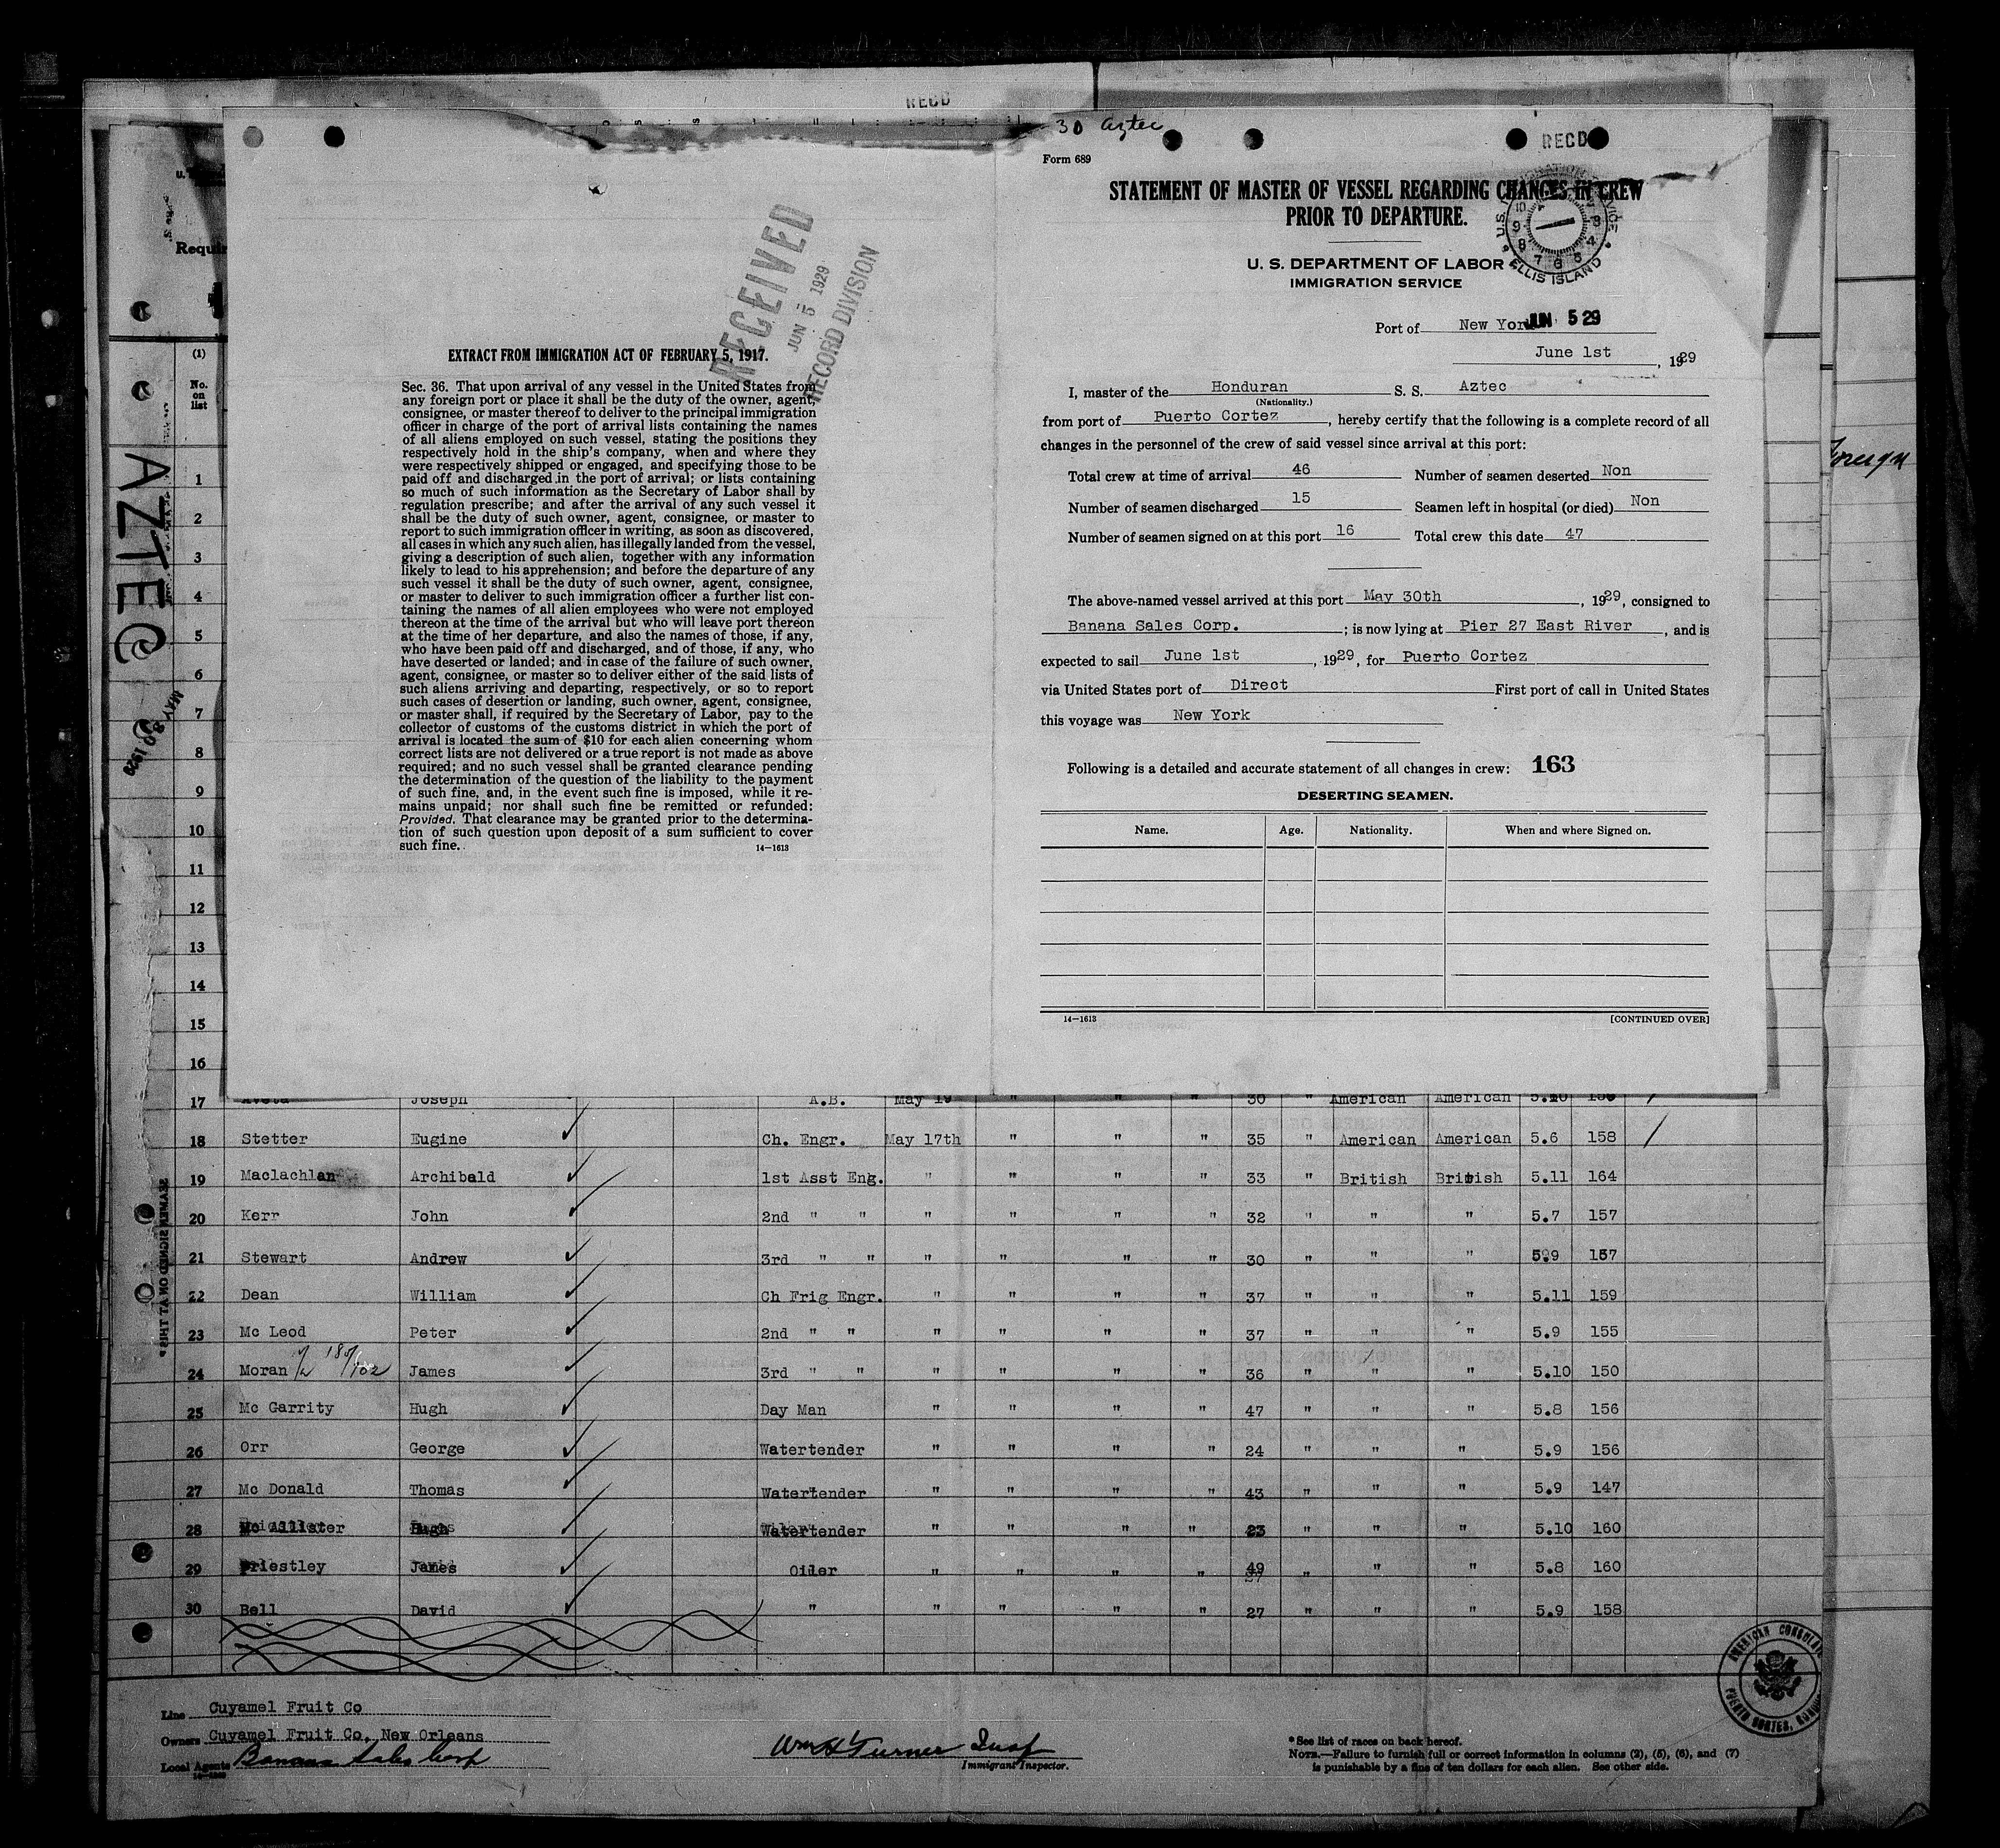 RECD
30 Aztec
RECD
Form 689
STATEMENT OF MASTER OF VESSEL REGARDING CHANGES IN CREW
PRIOR TO DEPARTURE.
U. S. DEPARTMENT OF LABOR
IMMIGRATION SERVICE
ELLIS ISLAND
Port of New York
JUN 5 29
June 1st, 1929
I, master of the Honduran S. S. Aztec
(Nationality.)
from port of Puerto Cortez, hereby certify that the following is a complete record of all
changes in the personnel of the crew of said vessel since arrival at this port:
Total crew at time of arrival 46 Number of seamen deserted Non
Number of seamen discharged 15 Seamen left in hospital (or died) Non
Number of seamen signed on at this port 16 Total crew this date 47
The above-named vessel arrived at this port May 30th, 1929, consigned to
Banana Sales Corp.; is now lying at Pier 27 East River, and is
expected to sail June 1st, 1929, for Puerto Cortez
via United States port of Direct First port of call in United States
this voyage was New York
Following is a detailed and accurate statement of all changes in crew: 163
DESERTING SEAMEN.
Name. Age. Nationality. When and where Signed on.
14—1613 [CONTINUED OVER]
RECEIVED
JUN 5 1929
RECORD DIVISION
EXTRACT FROM IMMIGRATION ACT OF FEBRUARY 5, 1917.
Sec. 36. That upon arrival of any vessel in the United States from
any foreign port or place it shall be the duty of the owner, agent,
consignee, or master thereof to deliver to the principal immigration
officer in charge of the port of arrival lists containing the names
of all aliens employed on such vessel, stating the positions they
respectively hold in the ship's company, when and where they
were respectively shipped or engaged, and specifying those to be
paid off and discharged in the port of arrival; or lists containing
so much of such information as the Secretary of Labor shall by
regulation prescribe; and after the arrival of any such vessel it
shall be the duty of such owner, agent, consignee, or master to
report to such immigration officer in writing, as soon as discovered,
all cases in which any such alien, has illegally landed from the vessel,
giving a description of such alien, together with any information
likely to lead to his apprehension; and before the departure of any
such vessel it shall be the duty of such owner, agent, consignee,
or master to deliver to such immigration officer a further list con-
taining the names of all alien employees who were not employed
thereon at the time of the arrival but who will leave port thereon
at the time of her departure, and also the names of those, if any,
who have been paid off and discharged, and of those, if any, who
have deserted or landed; and in case of the failure of such owner,
agent, consignee, or master so to deliver either of the said lists of
such aliens arriving and departing, respectively, or so to report
such cases of desertion or landing, such owner, agent, consignee,
or master shall, if required by the Secretary of Labor, pay to the
collector of customs of the customs district in which the port of
arrival is located the sum of $10 for each alien concerning whom
correct lists are not delivered or a true report is not made as above
required; and no such vessel shall be granted clearance pending
the determination of the question of the liability to the payment
of such fine, and, in the event such fine is imposed, while it re-
mains unpaid; nor shall such fine be remitted or refunded:
Provided, That clearance may be granted prior to the determina-
tion of such question upon deposit of a sum sufficient to cover
such fine.
14—1613
AZTEC
MAY 30 1929
Foreign
(1)
No.
on
list
1
2
3
4
5
6
7
8
9
10
11
12
13
14
15
16
17 Joseph A.B. May 19 " " " 30 " American American
18 Stetter Eugine Ch. Engr. May 17th " " " 35 " American American 5.6 158
19 Maclachlan Archibald 1st Asst Eng. " " " " 33 " British British 5.11 164
20 Kerr John 2nd " " " " " " 32 " " " 5.7 157
21 Stewart Andrew 3rd " " " " " " 30 " " " 5.9 157
22 Dean William Ch Frig Engr. " " " " 37 " " " 5.11 159
23 Mc Leod Peter 2nd " " " " " " 37 " " " 5.9 155
24 Moran James 3rd " " " " " " 36 " " " 5.10 150
25 Mc Garrity Hugh Day Man " " " " 47 " " " 5.8 156
26 Orr George Watertender " " " " 24 " " " 5.9 156
27 Mc Donald Thomas Watertender " " " " 43 " " " 5.9 147
28 Mc Allister Hugh Watertender " " " " 23 " " " 5.10 160
29 Priestley James Oiler " " " " 49 " " " 5.8 160
30 Bell David " " " " " 27 " " " 5.9 158
Line Cuyamel Fruit Co
Owners Cuyamel Fruit Co, New Orleans
Local Agents Banana Sales Corp
Wm H Turner Insp
Immigrant Inspector.
* See list of races on back hereof.
NOTE.—Failure to furnish full or correct information in columns (2), (5), (6), and (7)
is punishable by a fine of ten dollars for each alien. See other side.